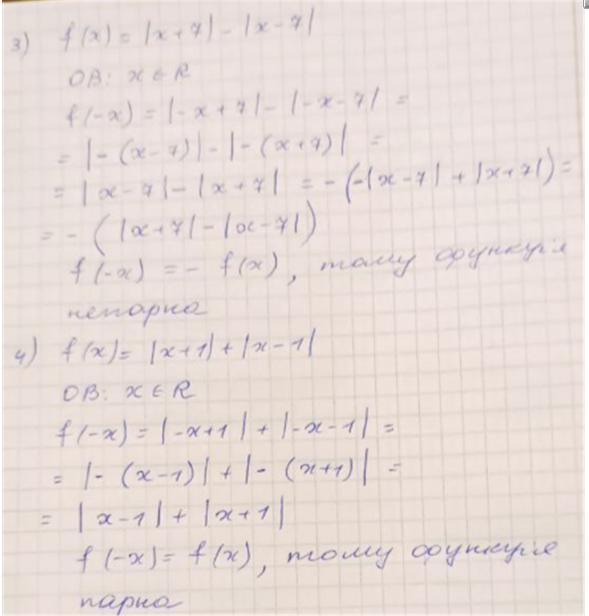 3) f(x) = |x+7| - |x-7|
ОВ: x ∈ R
f(-x) = |-x+7| - |-x-7| =
= |-(x-7)| - |-(x+7)| =
= |x-7| - |x+7| = -(-|x-7| + |x+7|) =
= -(|x+7| - |x-7|)
f(-x) = - f(x), тому функція
непарна
4) f(x) = |x+1| + |x-1|
ОВ: x ∈ R
f(-x) = |-x+1| + |-x-1| =
= |-(x-1)| + |-(x+1)| =
= |x-1| + |x+1|
f(-x) = f(x), тому функція
парна